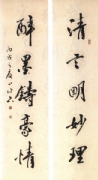 清言明妙理
醉墨铸豪情